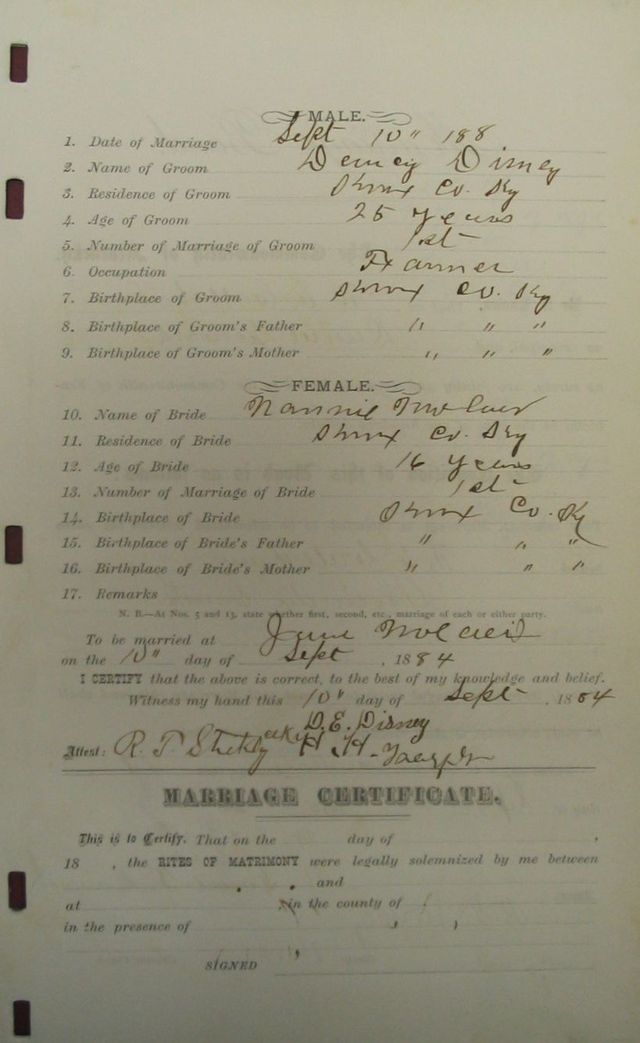 MALE.
1. Date of Marriage Sept 10" 188
2. Name of Groom Demcy Disney
3. Residence of Groom Knox Co. Ky
4. Age of Groom 25 years
5. Number of Marriage of Groom 1st
6. Occupation Farmer
7. Birthplace of Groom Knox Co. Ky
8. Birthplace of Groom's Father " " "
9. Birthplace of Groom's Mother " " "
FEMALE.
10. Name of Bride Nannie
11. Residence of Bride Knox Co. Ky
12. Age of Bride 16 years
13. Number of Marriage of Bride 1st
14. Birthplace of Bride Knox Co. Ky
15. Birthplace of Bride's Father " " "
16. Birthplace of Bride's Mother " " "
17. Remarks
N. B.—At Nos. 5 and 13, state whether first, second, etc., marriage of each or either party.
To be married at
on the 10" day of Sept , 1884
I CERTIFY that the above is correct, to the best of my knowledge and belief.
Witness my hand this 10" day of Sept , 1884
D. E. Disney
Attest: R. T.
MARRIAGE CERTIFICATE.
This is to Certify, That on the day of ,
18 , the RITES OF MATRIMONY were legally solemnized by me between
and
at in the county of
in the presence of
SIGNED